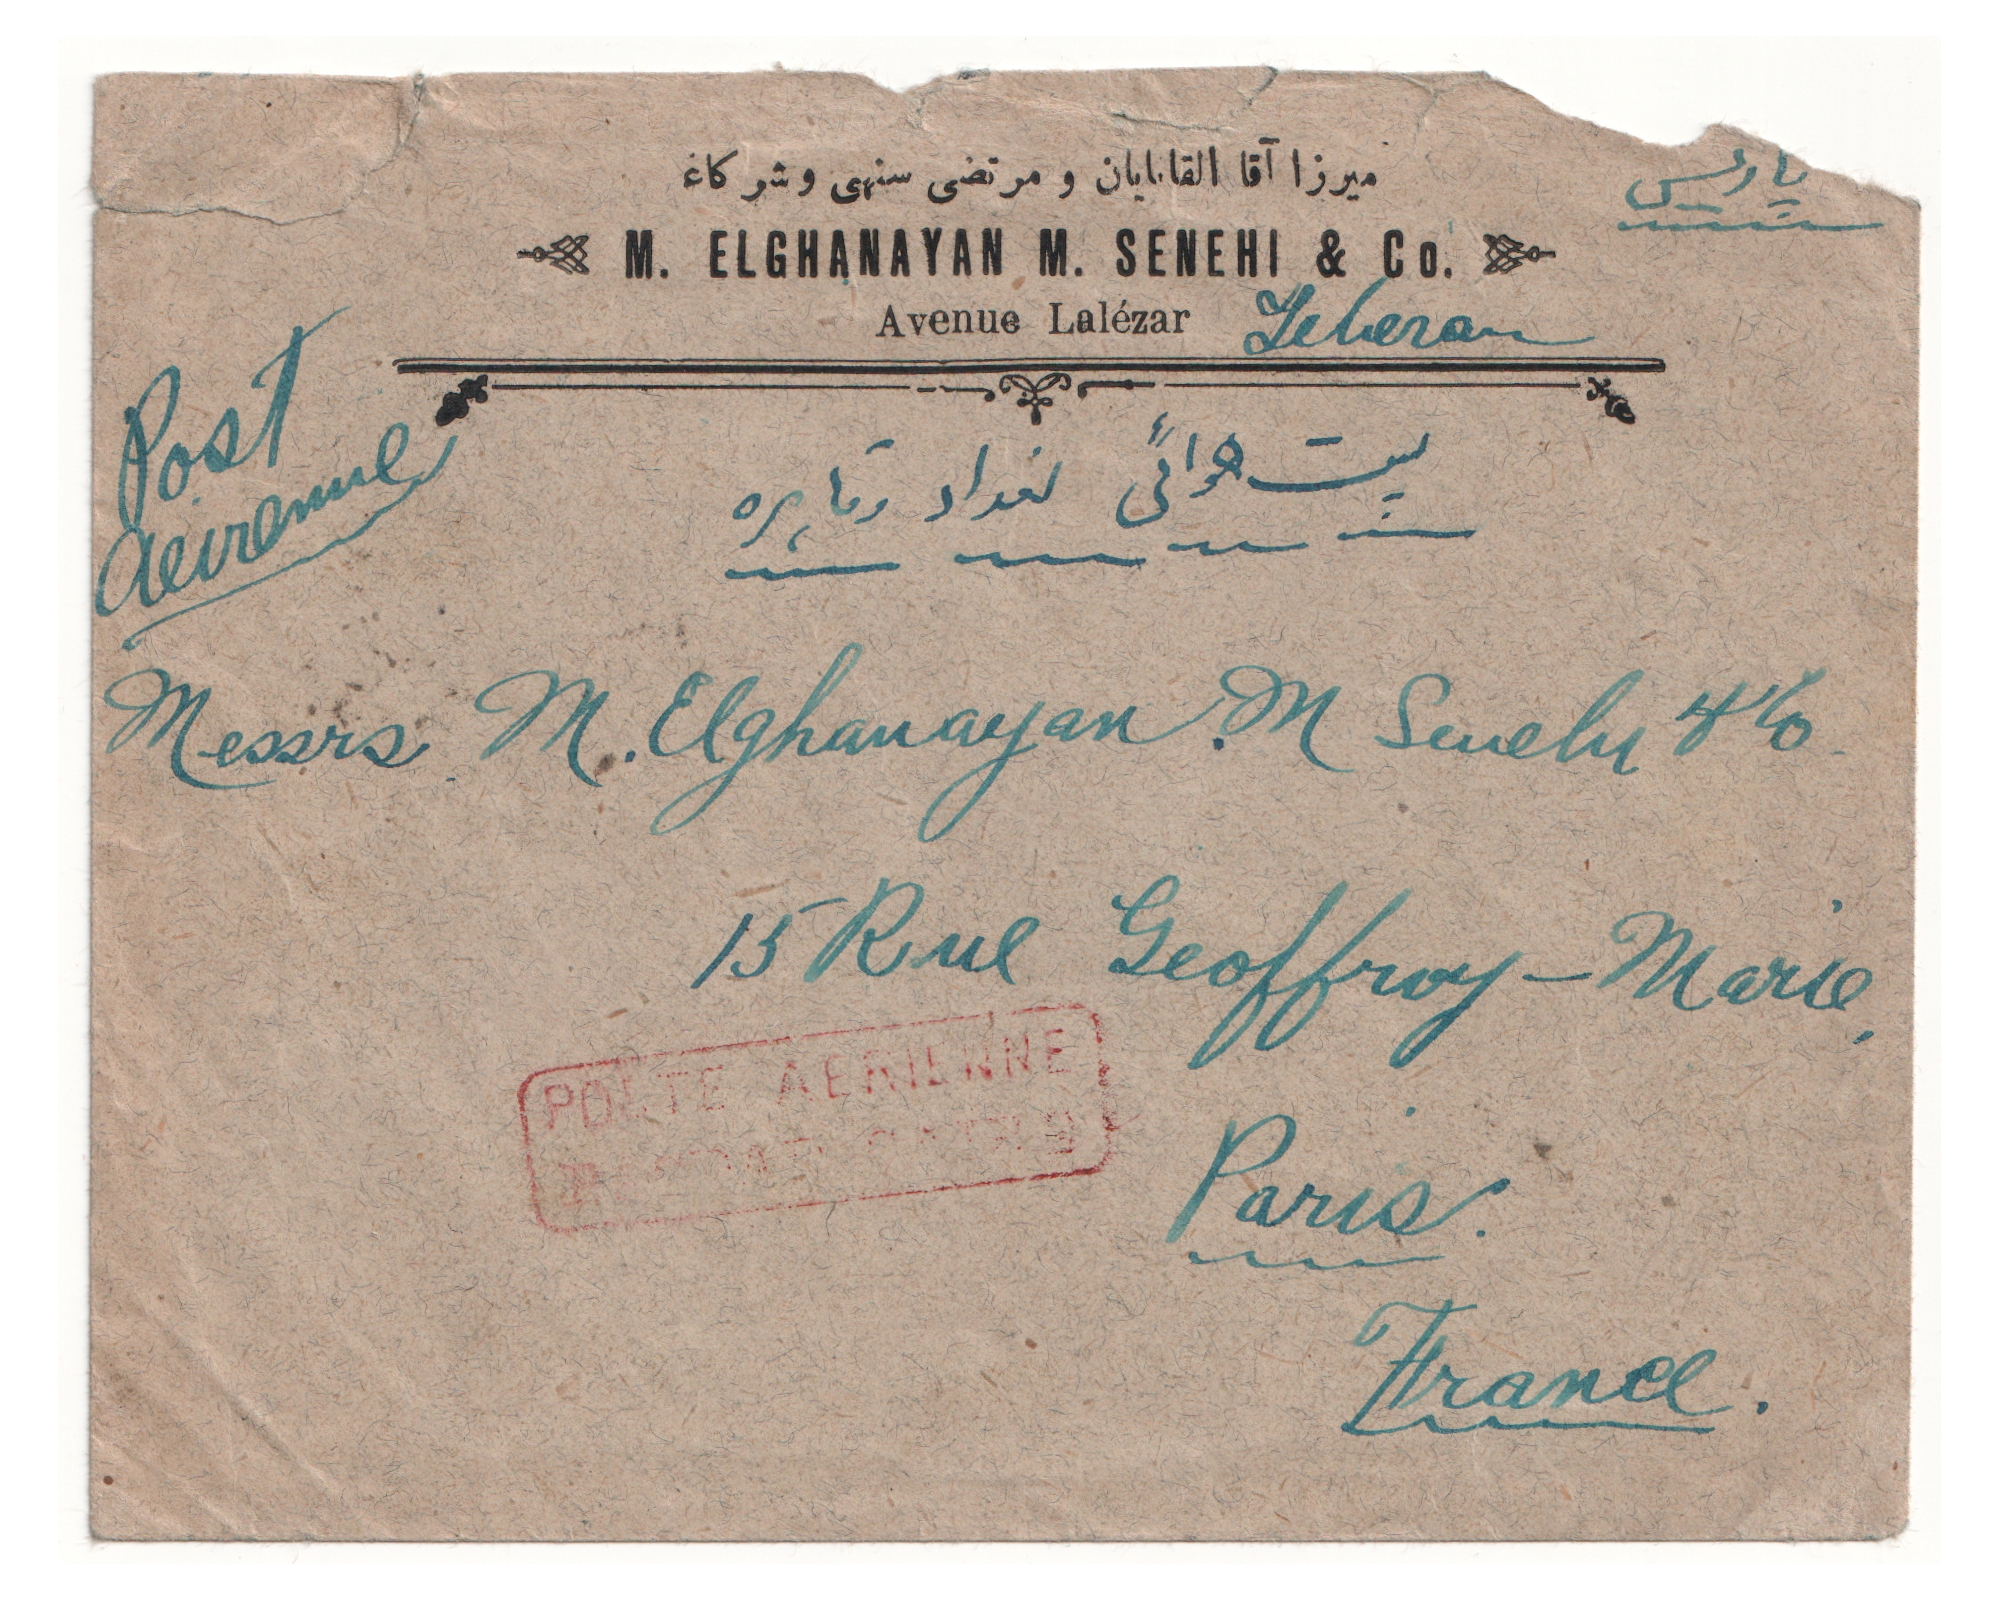 پاریس
میرزا آقا القانایان و مرتضی سنهی و شرکاء
M. ELGHANAYAN M. SENEHI & Co.
Avenue Lalézar Teheran
Post
Aeirenne
پست هوائی بغداد و قاهره
Messrs. M. Elghanayan. M Senehi & Co.
15 Rue Geoffroy-Marie,
POSTE AERIENNE
Paris.
France.